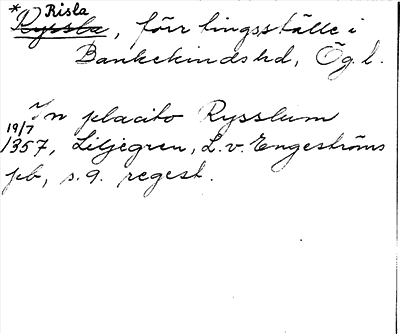 * Risla
Ryssla, förr tingsställe i
Bankekinds hd, Ög.l.
In placito Rysslum
19/7
1357, Liljegren, L.v. Engeströms
pb, s. 9. regest.